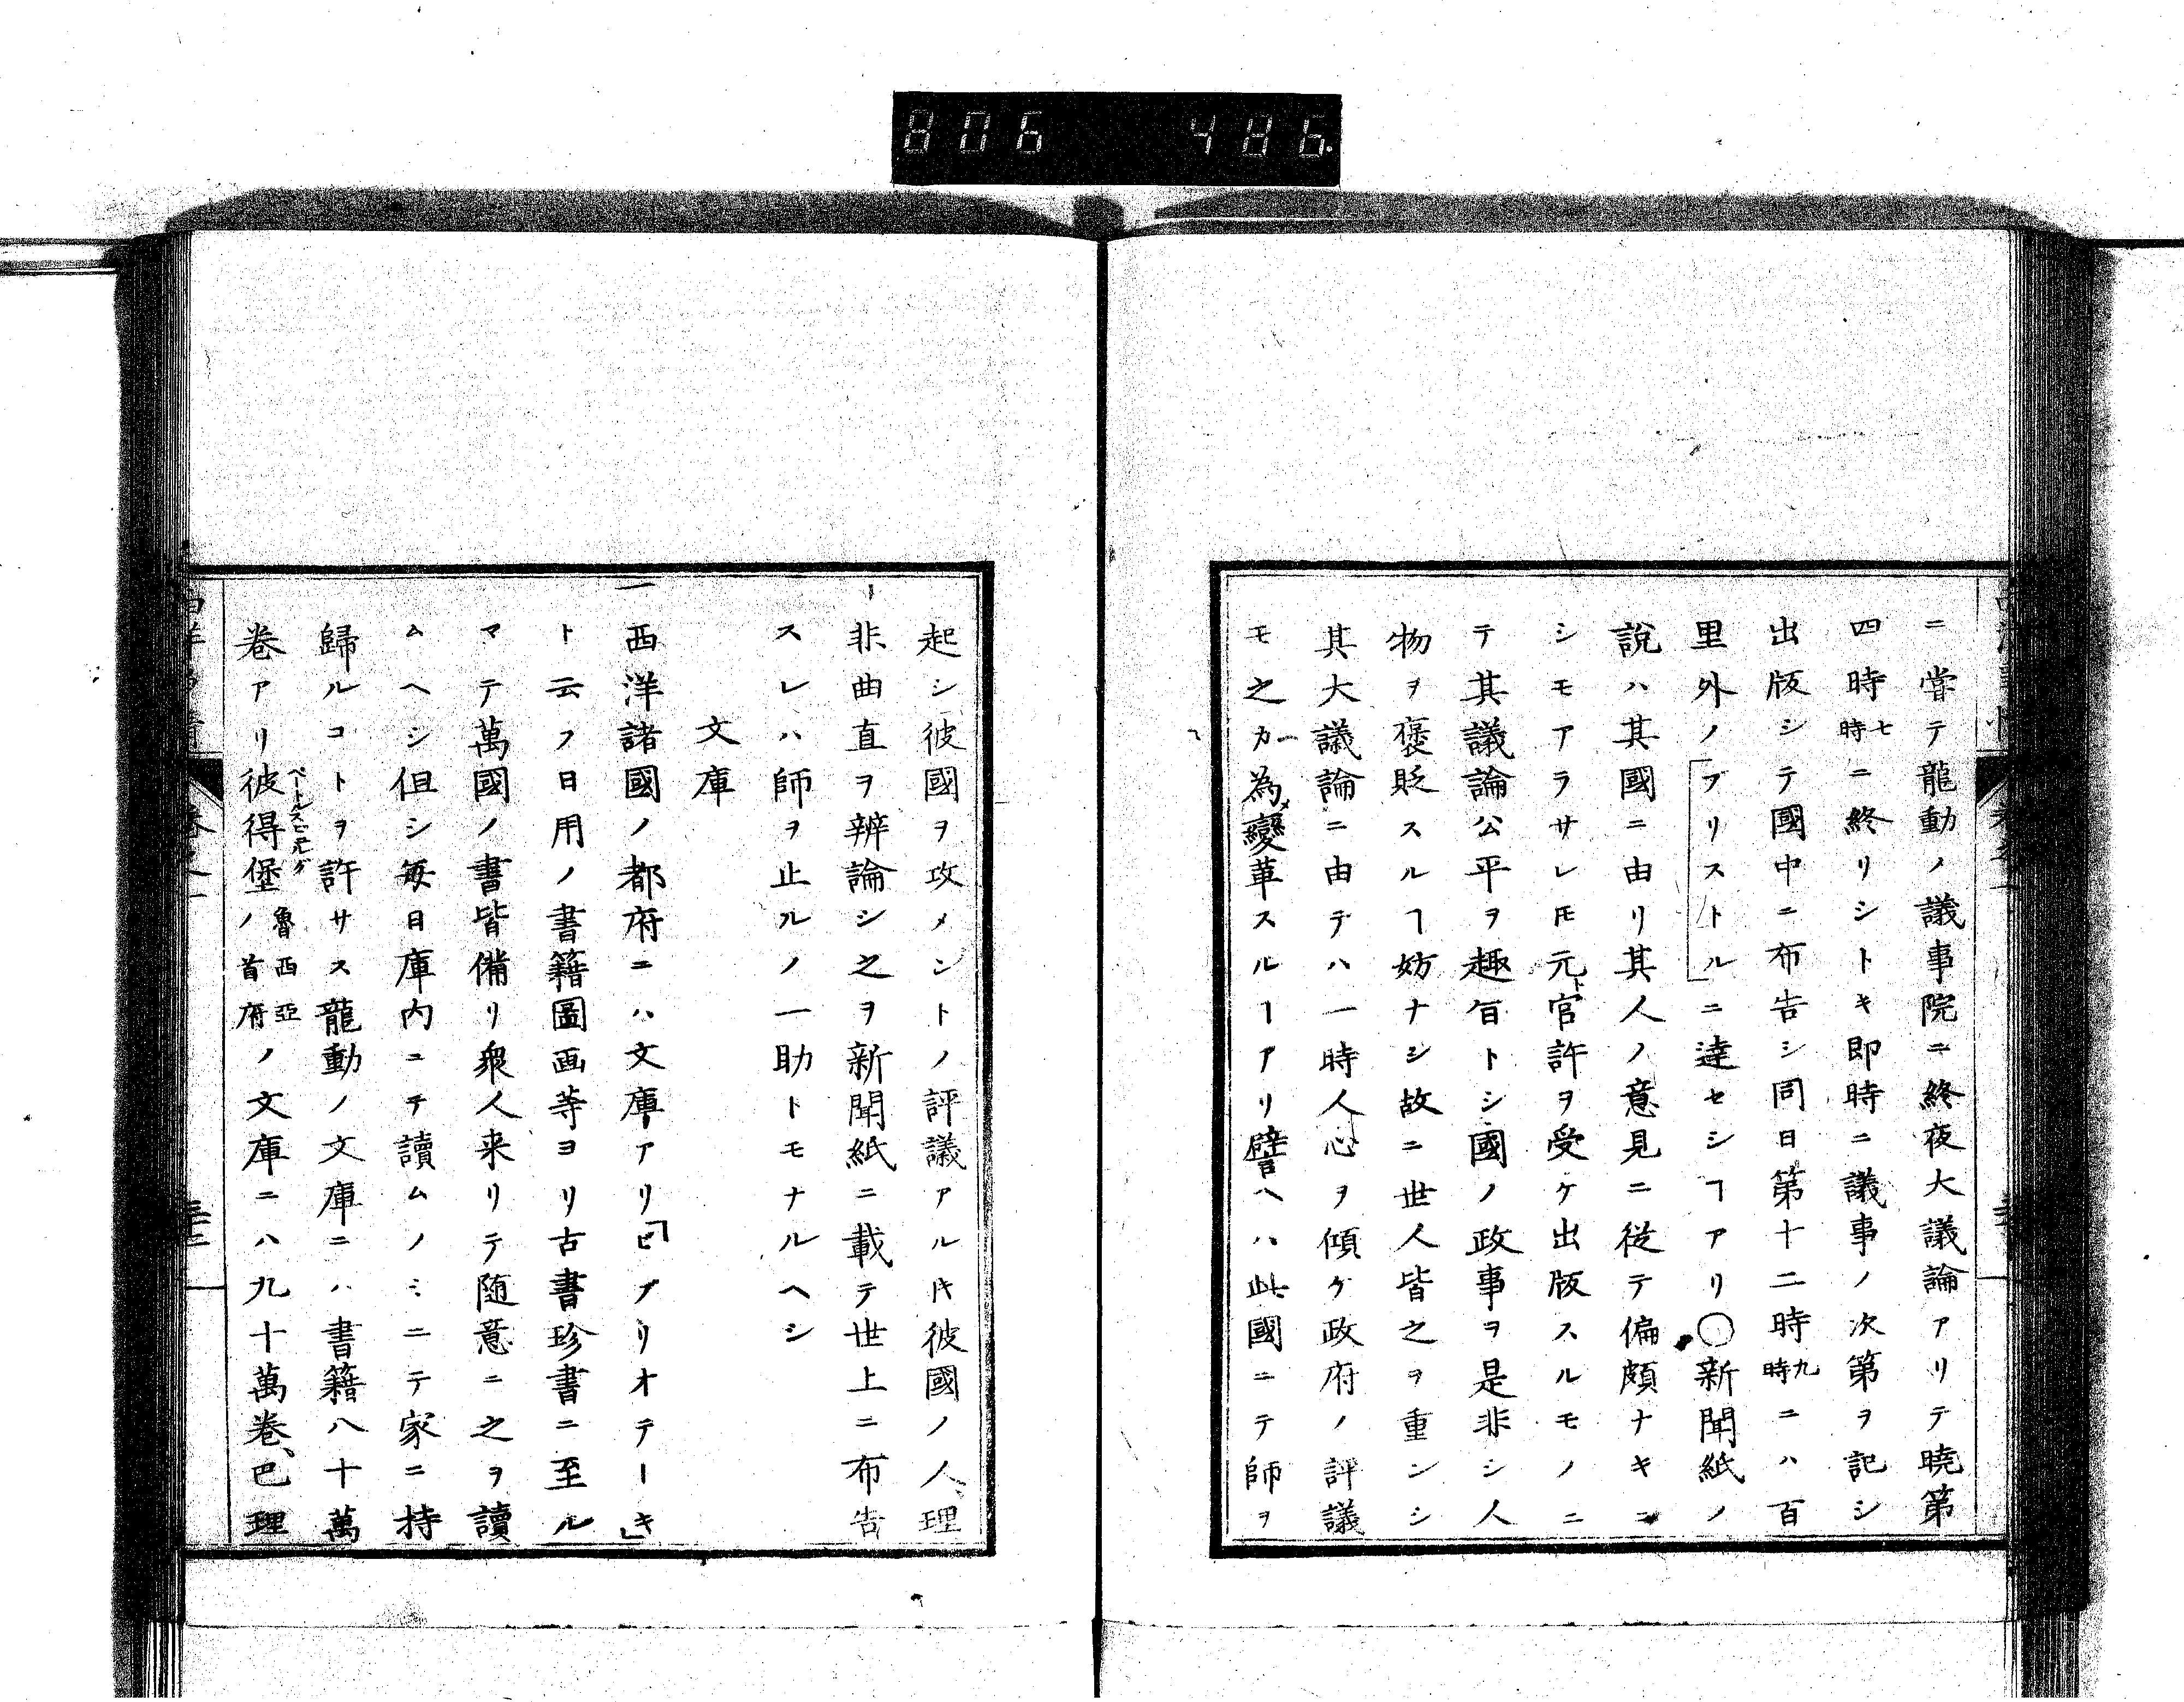 806 486.
ニ嘗テ龍動ノ議事院ニ終夜大議論アリテ曉第
四時七時ニ終リシトキ即時ニ議事ノ次第ヲ記シ
出版シテ國中ニ布告シ同日第十二時九時ニハ百
里外ノ「ブリストル」ニ達セシヿアリ○新聞紙ノ
說ハ其國ニ由リ其人ノ意見ニ從テ偏頗ナキニ
シモアラサレ𪜈元ト官許ヲ受ケ出版スルモノニ
テ其議論公平ヲ趣旨トシ國ノ政事ヲ是非シ人
物ヲ褒貶スルヿ妨ナシ故ニ世人皆之ヲ重ンシ
其大議論ニ由テハ一時人心ヲ傾ケ政府ノ評議
モ之カ為メ變革スルヿアリ譬ヘハ此國ニテ師ヲ
起シ彼國ヲ攻メントノ評議アルキ彼國ノ人理
非曲直ヲ辨論シ之ヲ新聞紙ニ載テ世上ニ布告
スレハ師ヲ止ルノ一助トモナルヘシ
文庫
一西洋諸國ノ都府ニハ文庫アリ「ビブリオテーキ」
ト云フ日用ノ書籍圖画等ヨリ古書珍書ニ至ル
マテ萬國ノ書皆備リ衆人来リテ随意ニ之ヲ讀
ムヘシ但シ每日庫内ニテ讀ムノミニテ家ニ持
歸ルコトヲ許サス龍動ノ文庫ニハ書籍八十萬
卷アリ彼得堡ペートルスビュルグ魯西亞ノ首府ノ文庫ニハ九十萬卷、巴理